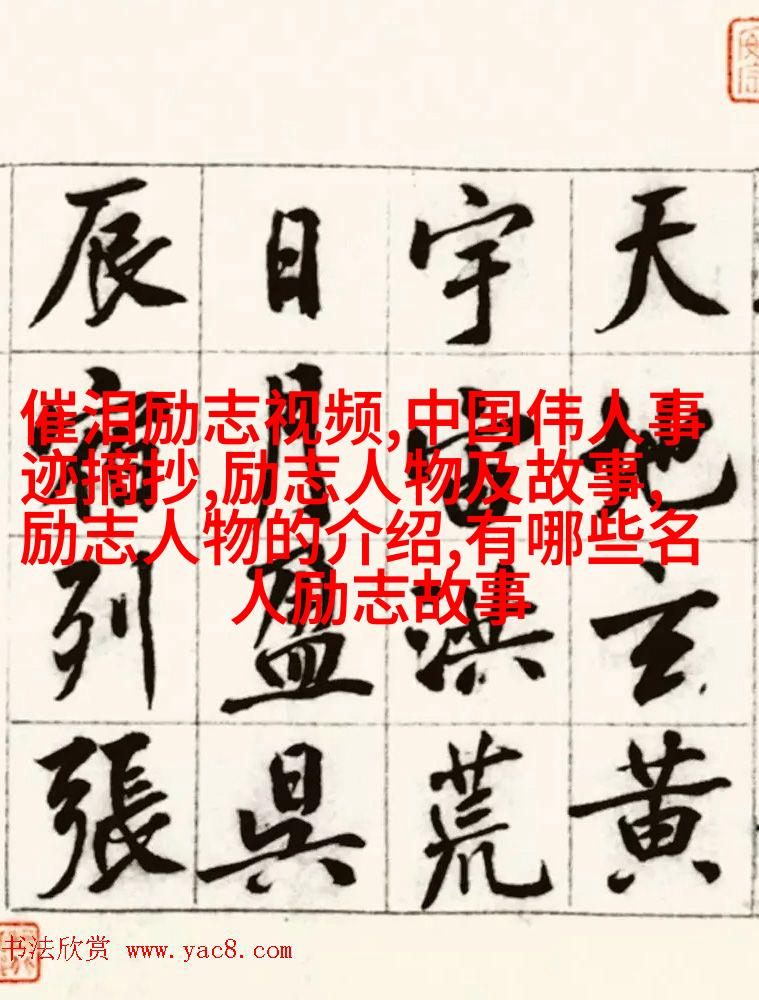 天地玄黄
宇宙洪荒
日月盈昃
辰宿列張
催泪励志视频,中国伟人事
迹摘抄,励志人物及故事,
励志人物的介绍,有哪些名
人励志故事
书法欣赏 www.yac8.com